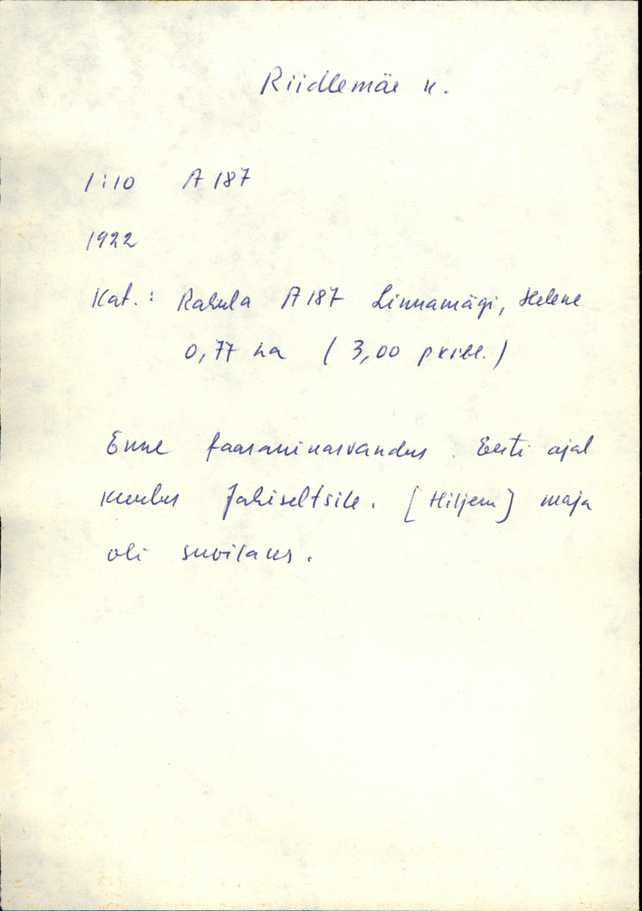 Riidlemäe k.
1:10 A 187
1922
Kat.: Rahula A 187 Linnamägi, Helene
0,77 ha ( 3,00 prtl. )
Enne faasanikasvandus. Eesti ajal
kuulus Jahiseltsile. [Hiljem] maja
oli suvilaks.